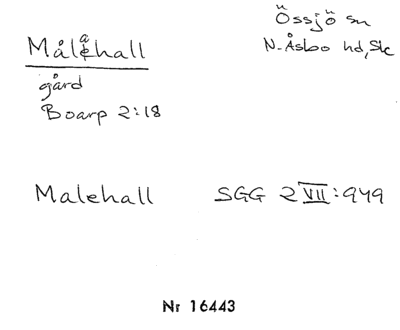 Målahall
Össjö sn
N. Åsbo hd, Sk
gård
Boarp 2:18
Malehall SGG 2 VII: 949
Nr 16443